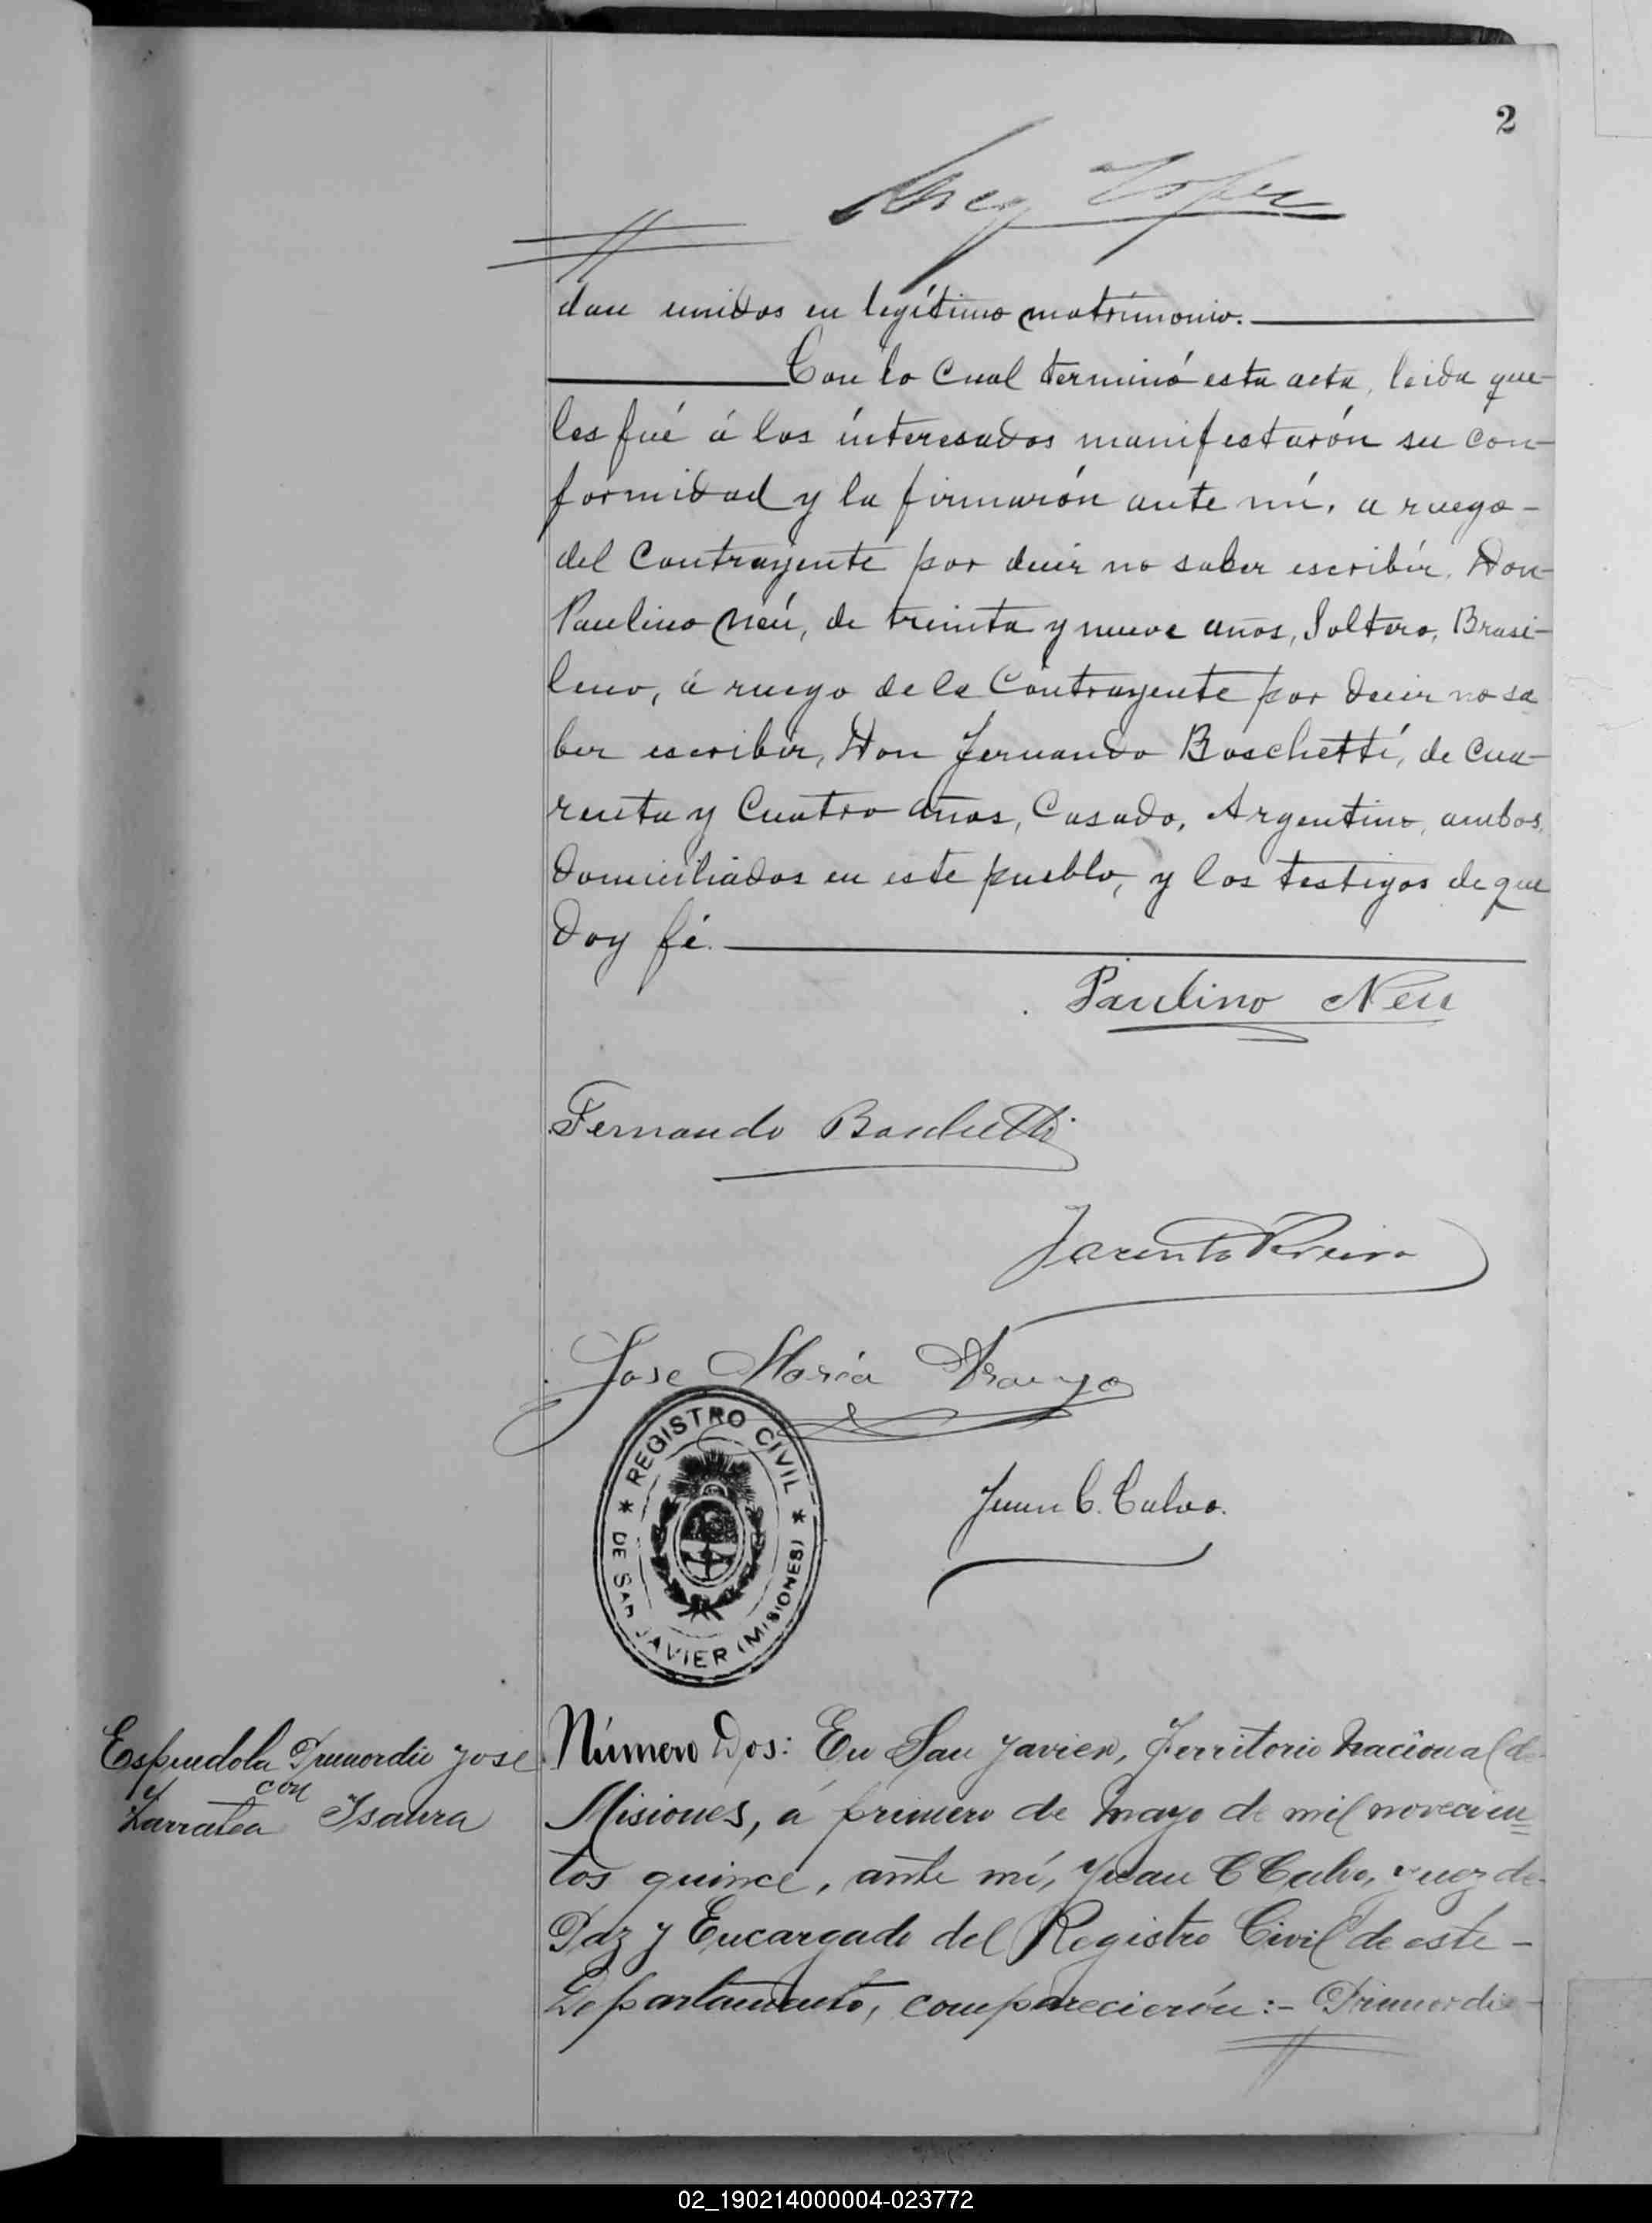 2
dan unidos en legítimo matrimonio.
Con lo cual terminó esta acta, leida que
les fué á los interesados manifestarón su con-
formidad y la firmarón ante mí, a ruego-
del Contrayente por decir no saber escribir, Don
Paulino Neú, de treinta y nueve años, Soltero, Brasi-
leno, á ruego de la Contrayente por decir no sa
ber escribir, Don Fernando Boschetti, de cua-
renta y Cuatro años, Casado, Argentino, ambos
domiciliados en este pueblo, y los testigos de que
doy fé.
Paulino Neu
Fernando Boschetti
Jacinto Pereira
Jose María Araujo
REGISTRO CIVIL
DE SAN JAVIER (MISIONES)
Juan C. Calvo.
Espindola Primordio Jose
con
Larratea Isaura
Número Dos: En San Javier, Territorio Nacional de
Misiones, á primero de Mayo de mil novecien
tos quince, ante mí, Juan C Calvo, Juez de
Paz y Encargado del Registro Civil de este-
Departamento, comparecierón:- Primordio
02_190214000004-023772